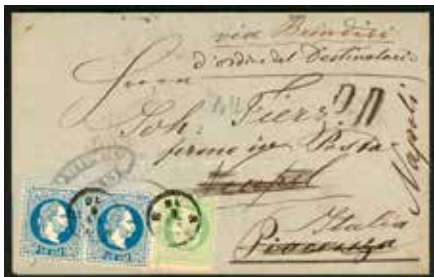 via Brindisi
d'ordine del Destinatario
Herrn
Joh. Fierz
fermo in Posta
Neapel
Napoli
Italia
Piacenza